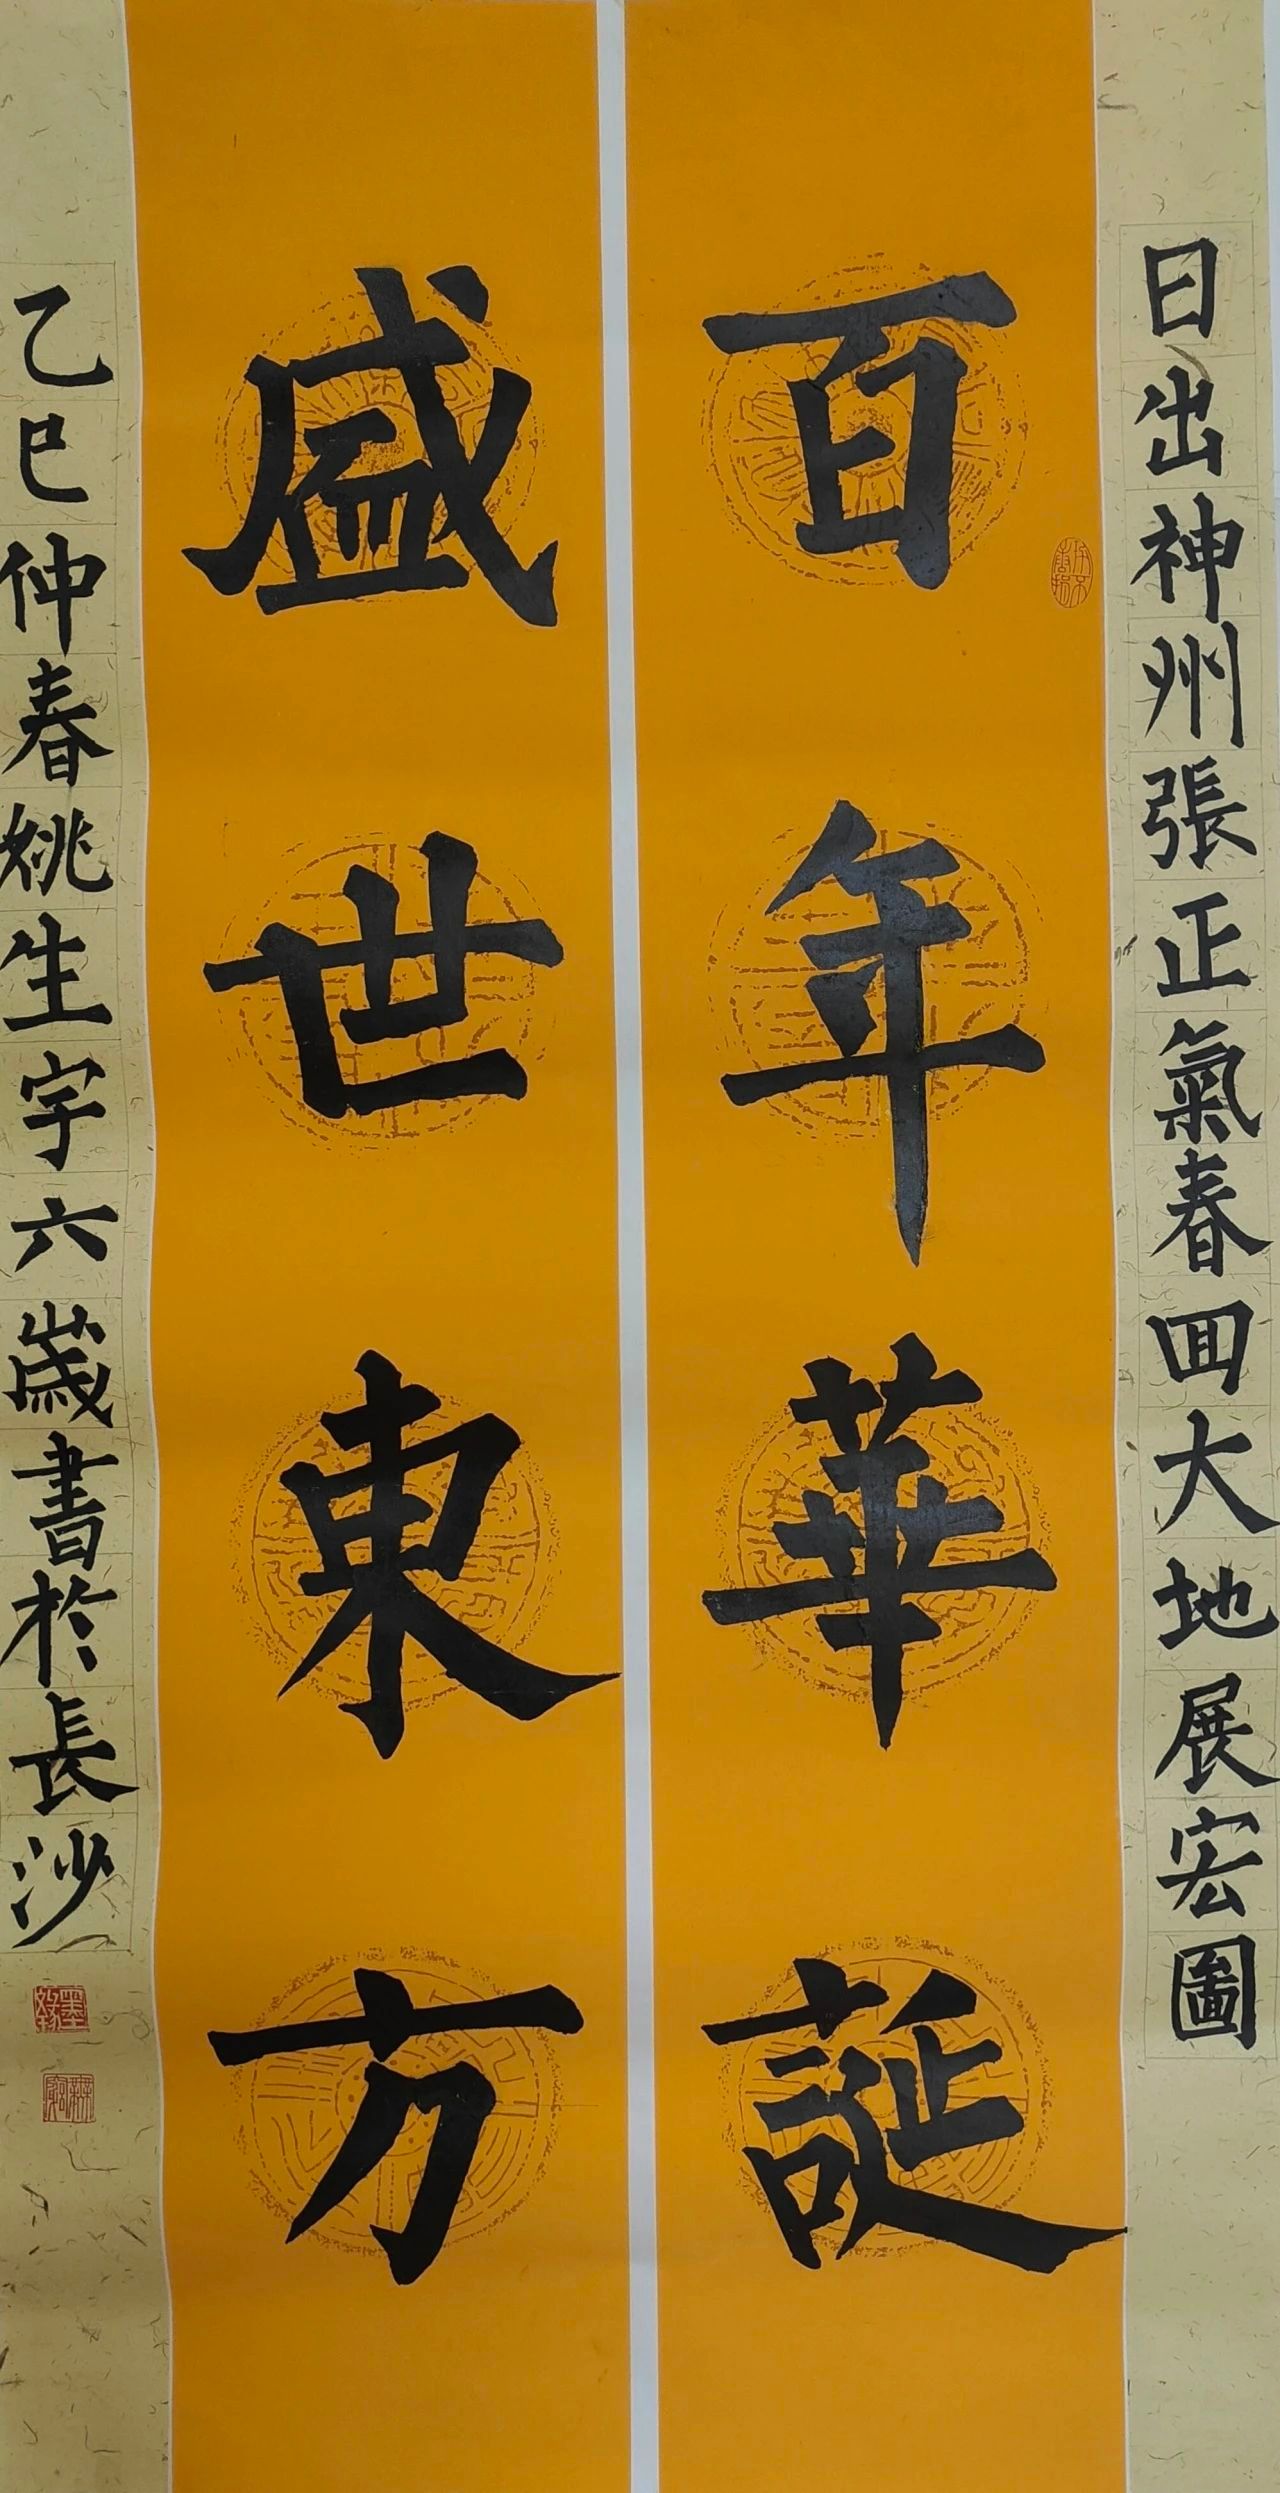 日出神州張正氣春回大地展宏圖
百年華誕
盛世東方
乙巳仲春姚生宇六歲書於長沙
墨緣